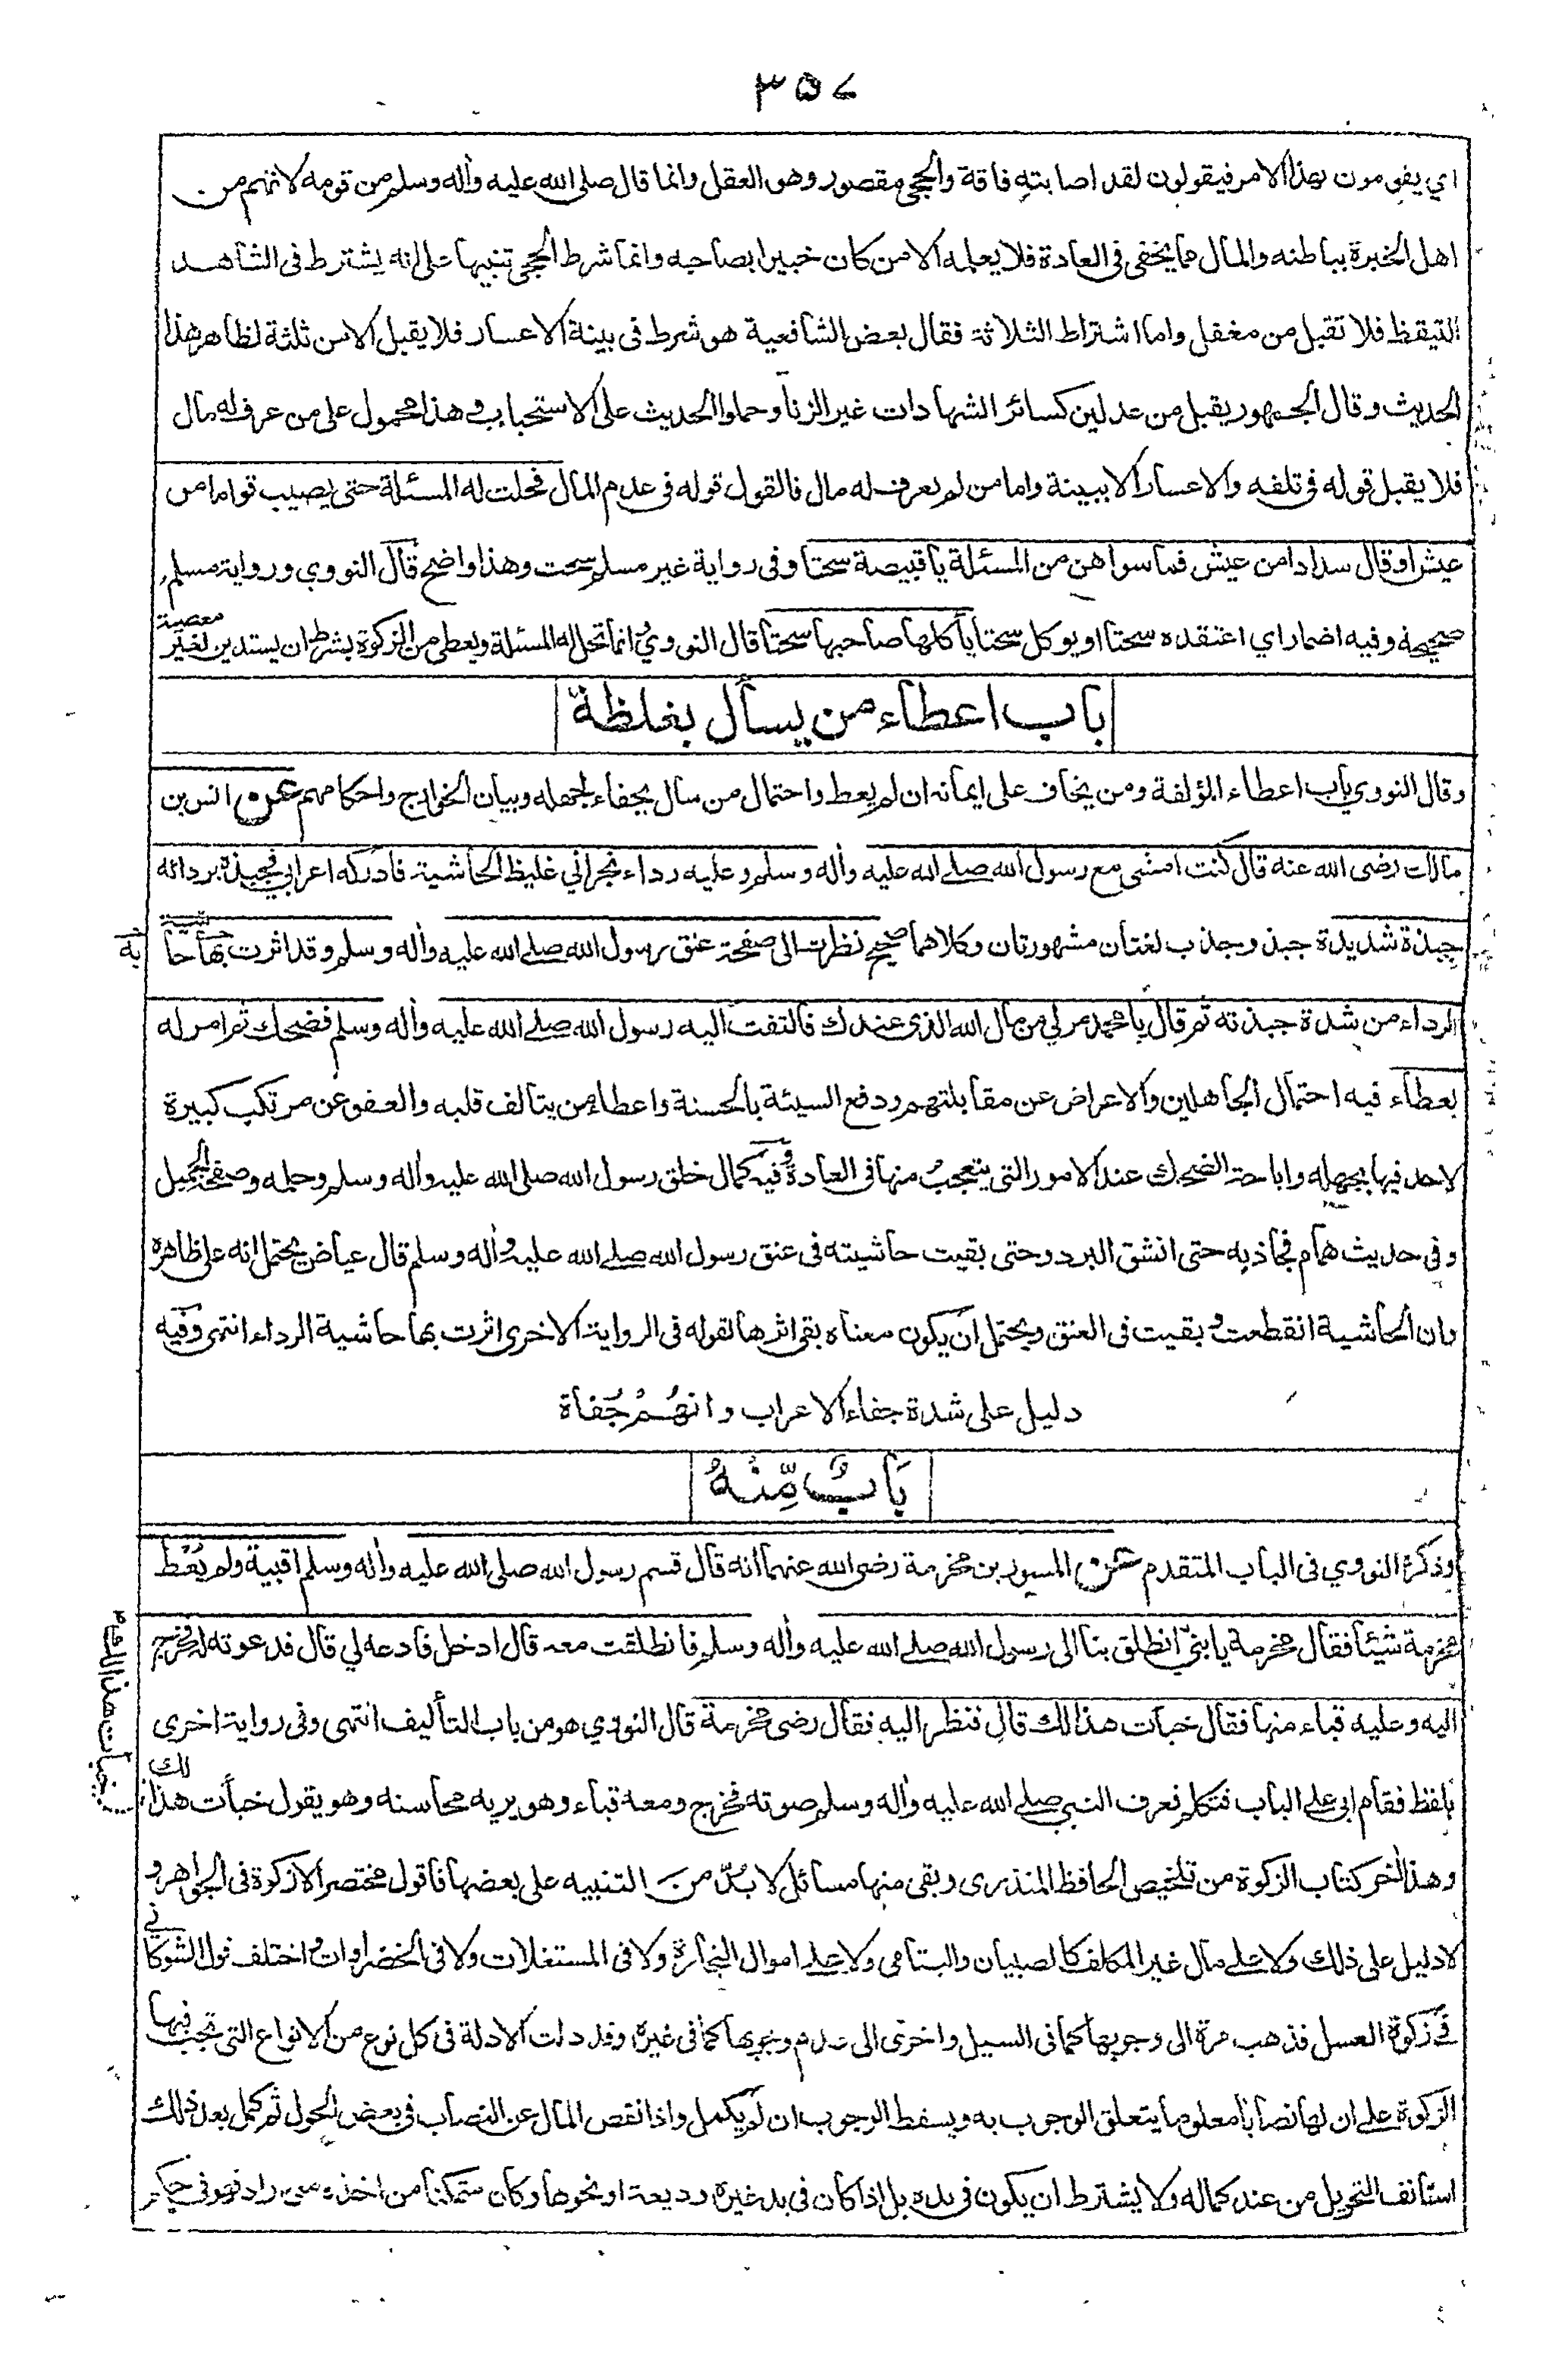 ٣٥٧
اي يقومون بهذا الامر فيقولون لقد اصابته فاقة والحجى مقصور وهو العقل وانما قال صلى الله عليه واٰله وسلم من قومه لانهم من
اهل الخبرة بباطنه والمال مما يخفى فى العادة فلا يعلمه الا من كان خبيرا بصاحبه وانما شرط الحجى تنبيها على انه يشترط فى الشاهد
التيقظ فلا تقبل من مغفل واما اشتراط الثلاثة فقال بعض الشافعية هو شرط فى بينة الاعسار فلا يقبل الا من ثلثة لظاهر هذا
الحديث وقال الجمهور يقبل من عدلين كسائر الشهادات غير الزنا وحملوا الحديث على الاستحباب وهذا محمول على من عرف له مال
فلا يقبل قوله فى تلفه والاعسار الا ببينة واما من لم يعرف له مال فالقول قوله فى عدم المال فحلت له المسئلة حتى يصيب قواما من
عيش او قال سدادا من عيش فما سواهن من المسئلة يا قبيصة سحتا وفى رواية غير مسلم سحت وهذا واضح قال النووي ورواية مسلم
صحيحة وفيه اضمار اي اعتقده سحتا او يوكل سحتا يأكلها صاحبها سحتا قال النووي انما تحل له المسئلة ويعطى من الزكوة بشرط ان يستدين لغير معصية
باب اعطاء من يسأل بغلظة
وقال النووي باب اعطاء المؤلفة ومن يخاف على ايمانه ان لم يعط واحتمال من سأل بجفاء لجهله وبيان الخوارج واحكامهم عن انس بن
مالك رضى الله عنه قال كنت امشى مع رسول الله صلى الله عليه واٰله وسلم وعليه رداء نجراني غليظ الحاشية فادركه اعرابي فجبذه بردائه
جبذة شديدة جبذ وجذب لغتان مشهورتان وكلاهما صحيح نظرت الى صفحة عنق رسول الله صلى الله عليه واٰله وسلم وقد اثرت بها حاشية
به
الرداء من شدة جبذته ثم قال يا محمد مر لي من مال الله الذى عندك فالتفت اليه رسول الله صلى الله عليه واٰله وسلم فضحك ثم امر له
بعطاء فيه احتمال الجاهلين والاعراض عن مقابلتهم ودفع السيئة بالحسنة واعطاء من يتألف قلبه والعفو عن مرتكب كبيرة
لاحد فيها بجهله واباحة الضحك عند الامور التى يتعجب منها فى العادة وفيه كمال خلق رسول الله صلى الله عليه واٰله وسلم وحلمه وصفحه الجميل
وفى حديث همام فجاذبه حتى انشق البرد وحتى بقيت حاشيته فى عنق رسول الله صلى الله عليه واٰله وسلم قال عياض يحتمل انه على ظاهره
وان الحاشية انقطعت وبقيت فى العنق ويحتمل ان يكون معناه بقى اثرها لقوله فى الرواية الاخرى اثرت بها حاشية الرداء انتهى وفيه
دليل على شدة جفاء الاعراب وانهُمْ جُفاة
بَابٌ مِّنْهُ
وذكره النووي فى الباب المتقدم عن المسور بن مخرمة رضى الله عنهما انه قال قسم رسول الله صلى الله عليه واٰله وسلم اقبية ولم يُعْط
مخرمة شيئا فقال مخرمة يا بنيّ انطلق بنا الى رسول الله صلى الله عليه واٰله وسلم فانطلقت معه قال ادخل فادعه لي قال فدعوته له فخرج
اليه وعليه قباء منها فقال خبأت هذا لك قال فنظر اليه فقال رضى مخرمة قال النووي هو من باب التأليف انتهى وفى رواية اخرى
بلفظ فقام ابى على الباب فتكلم فعرف النبي صلى الله عليه واٰله وسلم صوته فخرج ومعه قباء وهو يريه محاسنه وهو يقول خبأت هذا لك
خبأت هذا لك
وهذا اٰخر كتاب الزكوة من تلخيص الحافظ المنذرى وبقى منها مسائل لا بُدّ من التنبيه على بعضها فاقول مختصر الا زكوة فى الجواهر و
لا دليل على ذلك ولا على مال غير المكلف كالصبيان واليتامى ولا على اموال التجارة ولا فى المستغلات ولا فى الخضراوات واختلف قول الشوكاني
فى زكوة العسل فذهب مرة الى وجوبها كما فى السيل واخرى الى عدم وجوبها كما فى غيره وقد دلت الادلة فى كل نوع من الانواع التى تجب فيها
الزكوة على ان لها نصابا معلوما يتعلق الوجوب به ويسقط الوجوب ان لم يكمل واذا نقص المال عن النصاب فى بعض الحول ثم كمل بعد ذلك
استأنف التحويل من عند كماله ولا يشترط ان يكون فى يده بل اذا كان فى يد غيره وديعة او نحوها وكان متمكنا من اخذه متى اراد فهو فى حكم